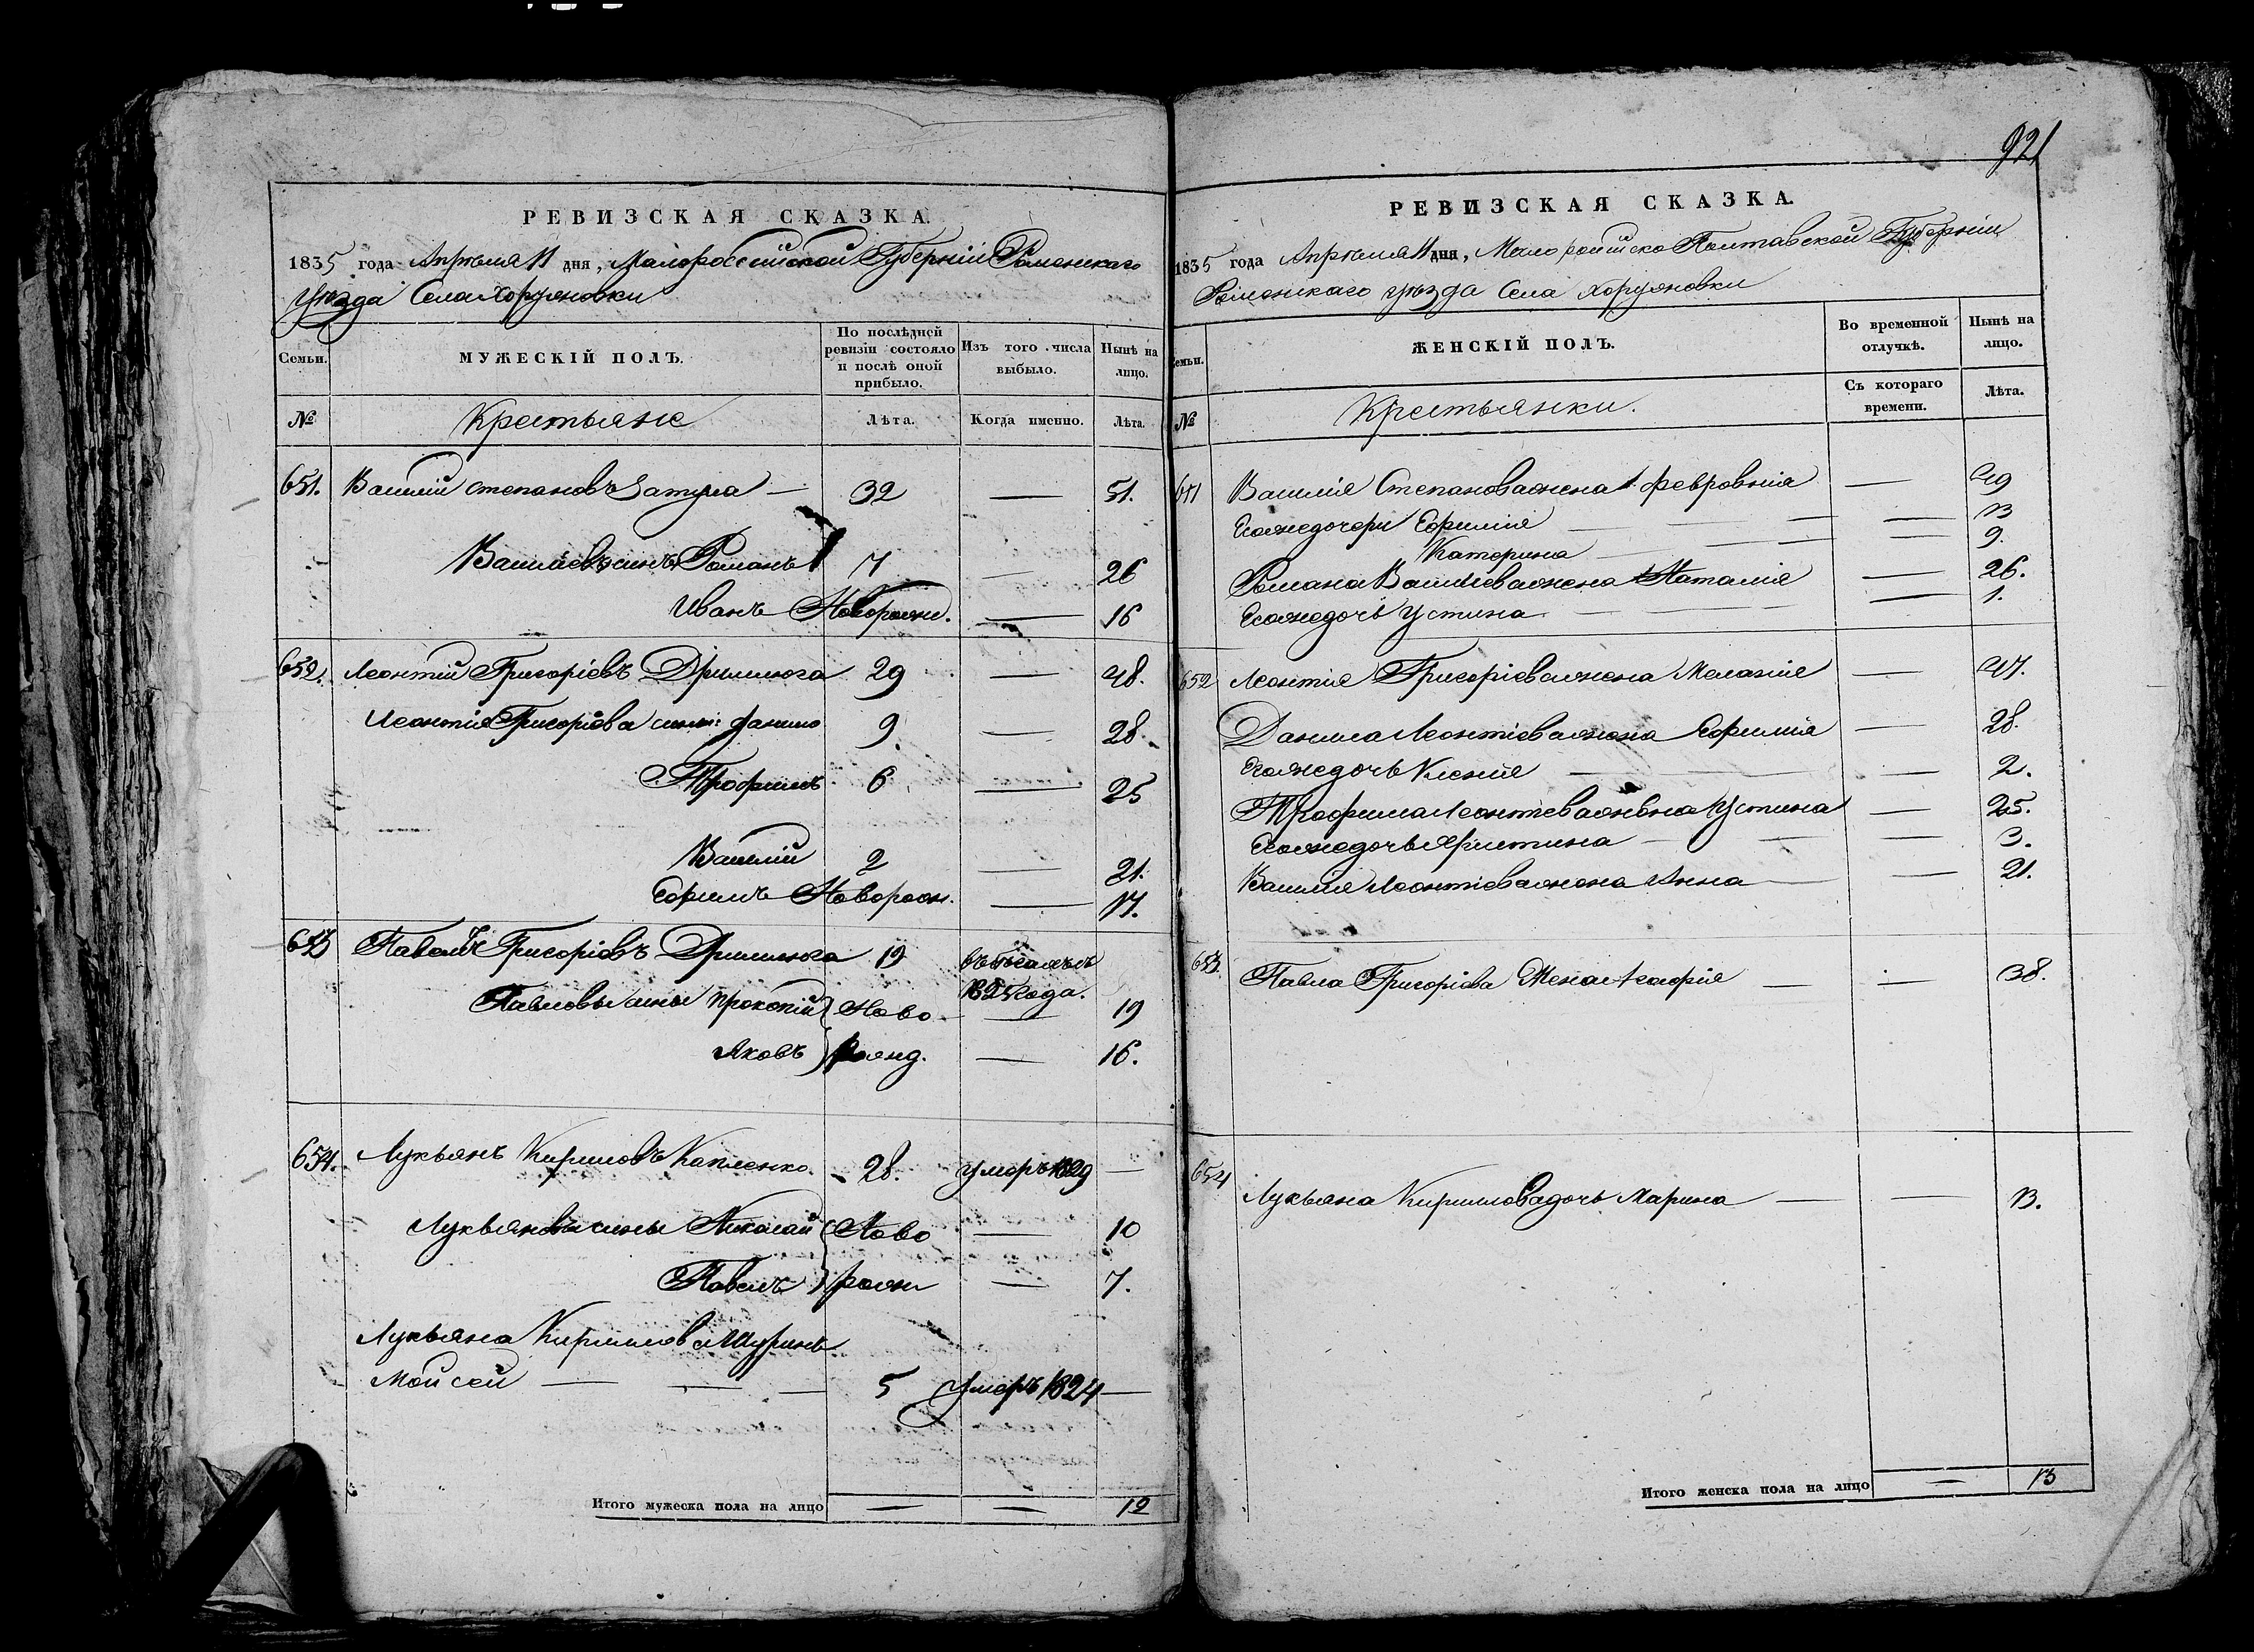 921
РЕВИЗСКАЯ СКАЗКА.
1835 года Апрѣля 11 дня, Малоросейской Губернiи Роменскаго
уѣзда Села Хоружовки
Семьи.
МУЖЕСКIЙ ПОЛЪ.
По послѣдней ревизiи состояло и послѣ оной прибыло.
Изъ того числа выбыло.
Нынѣ на лицо.
№
Крестьяне
Лѣта.
Когда именно.
Лѣта.
651. Василiй Степановъ Затула — 32 — 51.
Васильевъ сынъ Романъ 7 — 26
Иванъ Новорожд. — 16
652. Леонтiй Григорiевъ Дрымлюга 29 — 48.
Леонтiя Григорiева сыны: Данило 9. — 28.
Трофимъ 6 — 25
Василiй 2 — 21.
Ефимъ Новорож. — 17.
653 Павелъ Григорiевъ Дрымлюга 19
1825 года.
Павловы сыны Прокопiй Ново — 19
Яковъ рожд. — 16.
654. Лукьянъ Кириловъ Капленко 28. умеръ 1829 —
Лукьяновы сыны Николай Ново — 10
Павелъ рожд — 7.
Лукьяна Кирилова Шуринъ
Мойсей — — — 5 умеръ 1824 —
Итого мужеска пола на лицо — — 12
РЕВИЗСКАЯ СКАЗКА.
1835 года Апрѣля 11 дня, Малоросiйско Полтавской Губернiи
Роменскаго уѣзда Села Хоружовки
Семьи.
ЖЕНСКIЙ ПОЛЪ.
Во временной отлучкѣ.
Нынѣ на лицо.
№
Крестьянки.
Съ котораго времени.
Лѣта.
651 Василiя Степанова жена Февронiя — 49
Егоже дочери Ефимiя — — — 13
Катерина — — — 9.
Романа Васильева жена Наталiя — 26.
Егоже дочь Устина — — 1.
652 Леонтiя Григорiева жена Меланiя — 47.
Данила Леонтiева жена Ефимiя — 28.
Егоже дочь Ксенiя — — 2.
Трофима Леонтева жена Устина — 25.
Егоже дочь Христина — — — 3.
Василiя Леонтiева жена Анна — — 21.
653. Павла Григорiева Жена Агафiя — — 38.
654 Лукьяна Кирилова дочь Марина — — 13.
Итого женска пола на лицо — 13